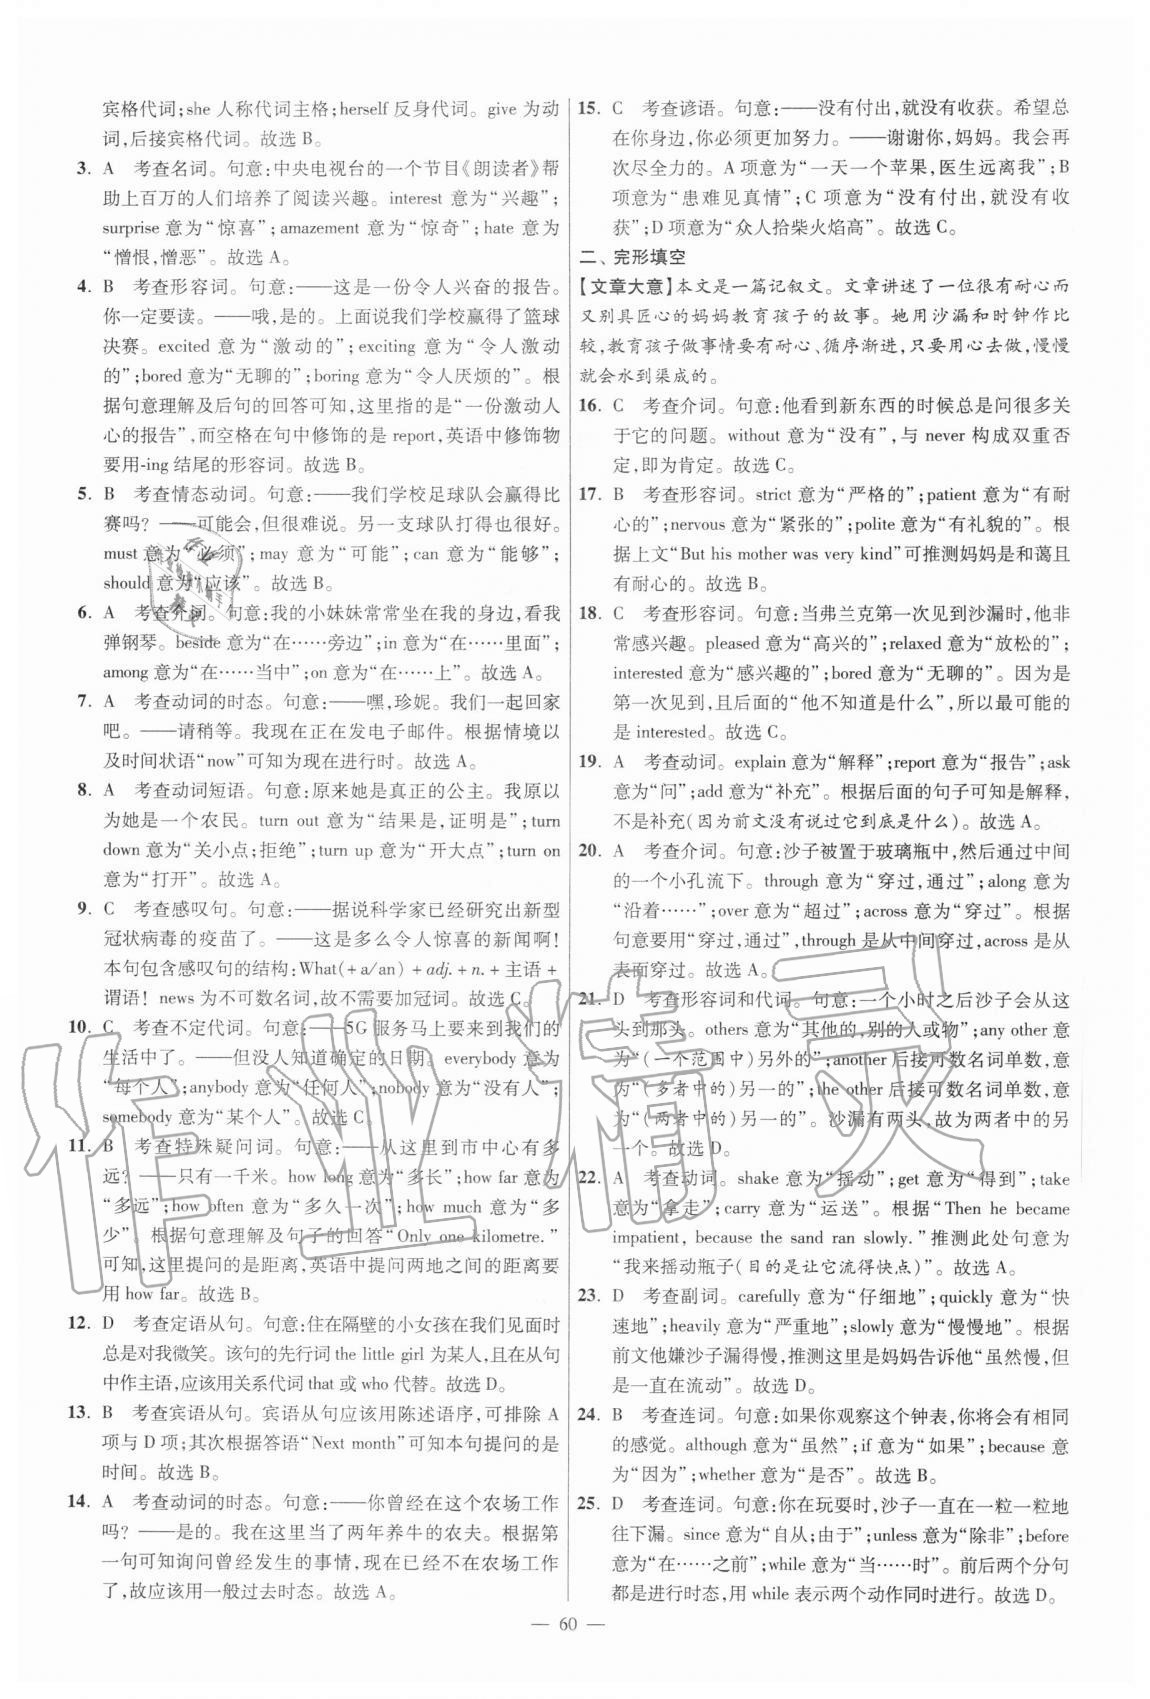 宾格代词;she 人称代词主格;herself 反身代词。give 为动
词,后接宾格代词。故选 B。
3. A 考查名词。句意:中央电视台的一个节目《朗读者》帮
助上百万的人们培养了阅读兴趣。interest 意为“兴趣”;
surprise 意为“惊喜”; amazement 意为“惊奇”; hate 意为
“憎恨,憎恶”。故选 A。
4. B 考查形容词。句意:——这是一份令人兴奋的报告。
你一定要读。——哦,是的。上面说我们学校赢得了篮球
决赛。excited 意为“激动的”; exciting 意为“令人激动
的”;bored 意为“无聊的”;boring 意为“令人厌烦的”。根
据句意理解及后句的回答可知,这里指的是“一份激动人
心的报告”,而空格在句中修饰的是 report,英语中修饰物
要用-ing 结尾的形容词。故选 B。
5. B 考查情态动词。句意:——我们学校足球队会赢得比
赛吗? ——可能会,但很难说。另一支球队打得也很好。
must 意为“必须”; may 意为“可能”; can 意为“能够”;
should 意为“应该”。故选 B。
6. A 考查介词。句意:我的小妹妹常常坐在我的身边,看我
弹钢琴。beside 意为“在……旁边”;in 意为“在……里面”;
among 意为“在……当中”;on 意为“在……上”。故选 A。
7. A 考查动词的时态。句意:——嘿,珍妮。我们一起回家
吧。——请稍等。我现在正在发电子邮件。根据情境以
及时间状语“now”可知为现在进行时。故选 A。
8. A 考查动词短语。句意:原来她是真正的公主。我原以
为她是一个农民。turn out 意为“结果是,证明是”;turn
down 意为“关小点;拒绝”;turn up 意为“开大点”;turn on
意为“打开”。故选 A。
9. C 考查感叹句。句意:——据说科学家已经研究出新型
冠状病毒的疫苗了。——这是多么令人惊喜的新闻啊!
本句包含感叹句的结构:What(+a/an) + adj. + n. + 主语 +
谓语! news 为不可数名词,故不需要加冠词。故选 C。
10. C 考查不定代词。句意:——5G 服务马上要来到我们的
生活中了。——但没人知道确定的日期。everybody 意为
“每个人”;anybody 意为“任何人”;nobody 意为“没有人”;
somebody 意为“某个人”。故选 C。
11. B 考查特殊疑问词。句意:——从这里到市中心有多
远? ——只有一千米。how long 意为“多长”;how far 意为
“多远”;how often 意为“多久一次”;how much 意为“多
少”。根据句意理解及句子的回答“Only one kilometre.”
可知,这里提问的是距离,英语中提问两地之间的距离要
用 how far。故选 B。
12. D 考查定语从句。句意:住在隔壁的小女孩在我们见面时
总是对我微笑。该句的先行词 the little girl 为某人,且在从句
中作主语,应该用关系代词 that 或 who 代替。故选 D。
13. B 考查宾语从句。宾语从句应该用陈述语序,可排除 A
项与 D 项;其次根据答语“Next month”可知本句提问的是
时间。故选 B。
14. A 考查动词的时态。句意:——你曾经在这个农场工作
吗? ——是的。我在这里当了两年养牛的农夫。根据第
一句可知询问曾经发生的事情,现在已经不在农场工作
了,故应该用一般过去时态。故选 A。
15. C 考查谚语。句意:——没有付出,就没有收获。希望总
在你身边,你必须更加努力。——谢谢你,妈妈。我会再
次尽全力的。A 项意为“一天一个苹果,医生远离我”;B
项意为“患难见真情”;C 项意为“没有付出,就没有收
获”;D 项意为“众人拾柴火焰高”。故选 C。
二、完形填空
【文章大意】本文是一篇记叙文。文章讲述了一位很有耐心而
又别具匠心的妈妈教育孩子的故事。她用沙漏和时钟作比
较,教育孩子做事情要有耐心、循序渐进,只要用心去做,慢慢
就会水到渠成的。
16. C 考查介词。句意:他看到新东西的时候总是问很多关
于它的问题。without 意为“没有”,与 never 构成双重否
定,即为肯定。故选 C。
17. B 考查形容词。strict 意为“严格的”;patient 意为“有耐
心的”;nervous 意为“紧张的”;polite 意为“有礼貌的”。根
据上文“But his mother was very kind”可推测妈妈是和蔼且
有耐心的。故选 B。
18. C 考查形容词。句意:当弗兰克第一次见到沙漏时,他非
常感兴趣。pleased 意为“高兴的”;relaxed 意为“放松的”;
interested 意为“感兴趣的”;bored 意为“无聊的”。因为是
第一次见到,且后面的“他不知道是什么”,所以最可能的
是 interested。故选 C。
19. A 考查动词。explain 意为“解释”;report 意为“报告”;ask
意为“问”;add 意为“补充”。根据后面的句子可知是解释,
不是补充(因为前文没有说过它到底是什么)。故选 A。
20. A 考查介词。句意:沙子被置于玻璃瓶中,然后通过中间
的一个小孔流下。through 意为“穿过,通过”;along 意为
“沿着……”;over 意为“超过”;across 意为“穿过”。根据
句意要用“穿过,通过”,through 是从中间穿过,across 是从
表面穿过。故选 A。
21. D 考查形容词和代词。句意:一个小时之后沙子会从这
头到那头。others 意为“其他的,别的人或物”;any other 意
为“(一个范围中)另外的”;another 后接可数名词单数,意
为“(多者中的)另一个”;the other 后接可数名词单数,意
为“(两者中的)另一个”。沙漏有两头,故为两者中的另
一个。故选 D。
22. A 考查动词。shake 意为“摇动”;get 意为“得到”;take
意为“拿走”; carry 意为“运送”。根据“Then he became
impatient, because the sand ran slowly.”推测此处句意为
“我来摇动瓶子(目的是让它流得快点)”。故选 A。
23. D 考查副词。carefully 意为“仔细地”;quickly 意为“快
速地”;heavily 意为“严重地”;slowly 意为“慢慢地”。根据
前文他嫌沙子漏得慢,推测这里是妈妈告诉他“虽然慢,但
是一直在流动”。故选 D。
24. B 考查连词。句意:如果你观察这个钟表,你将会有相同
的感觉。although 意为“虽然”;if 意为“如果”;because 意
为“因为”;whether 意为“是否”。故选 B。
25. D 考查连词。句意:你在玩耍时,沙子一直在一粒一粒地
往下漏。since 意为“自从;由于”;unless 意为“除非”;before
意为“在……之前”;while 意为“当……时”。前后两个分句
都是进行时态,用 while 表示两个动作同时进行。故选 D。
— 60 —
作业精灵